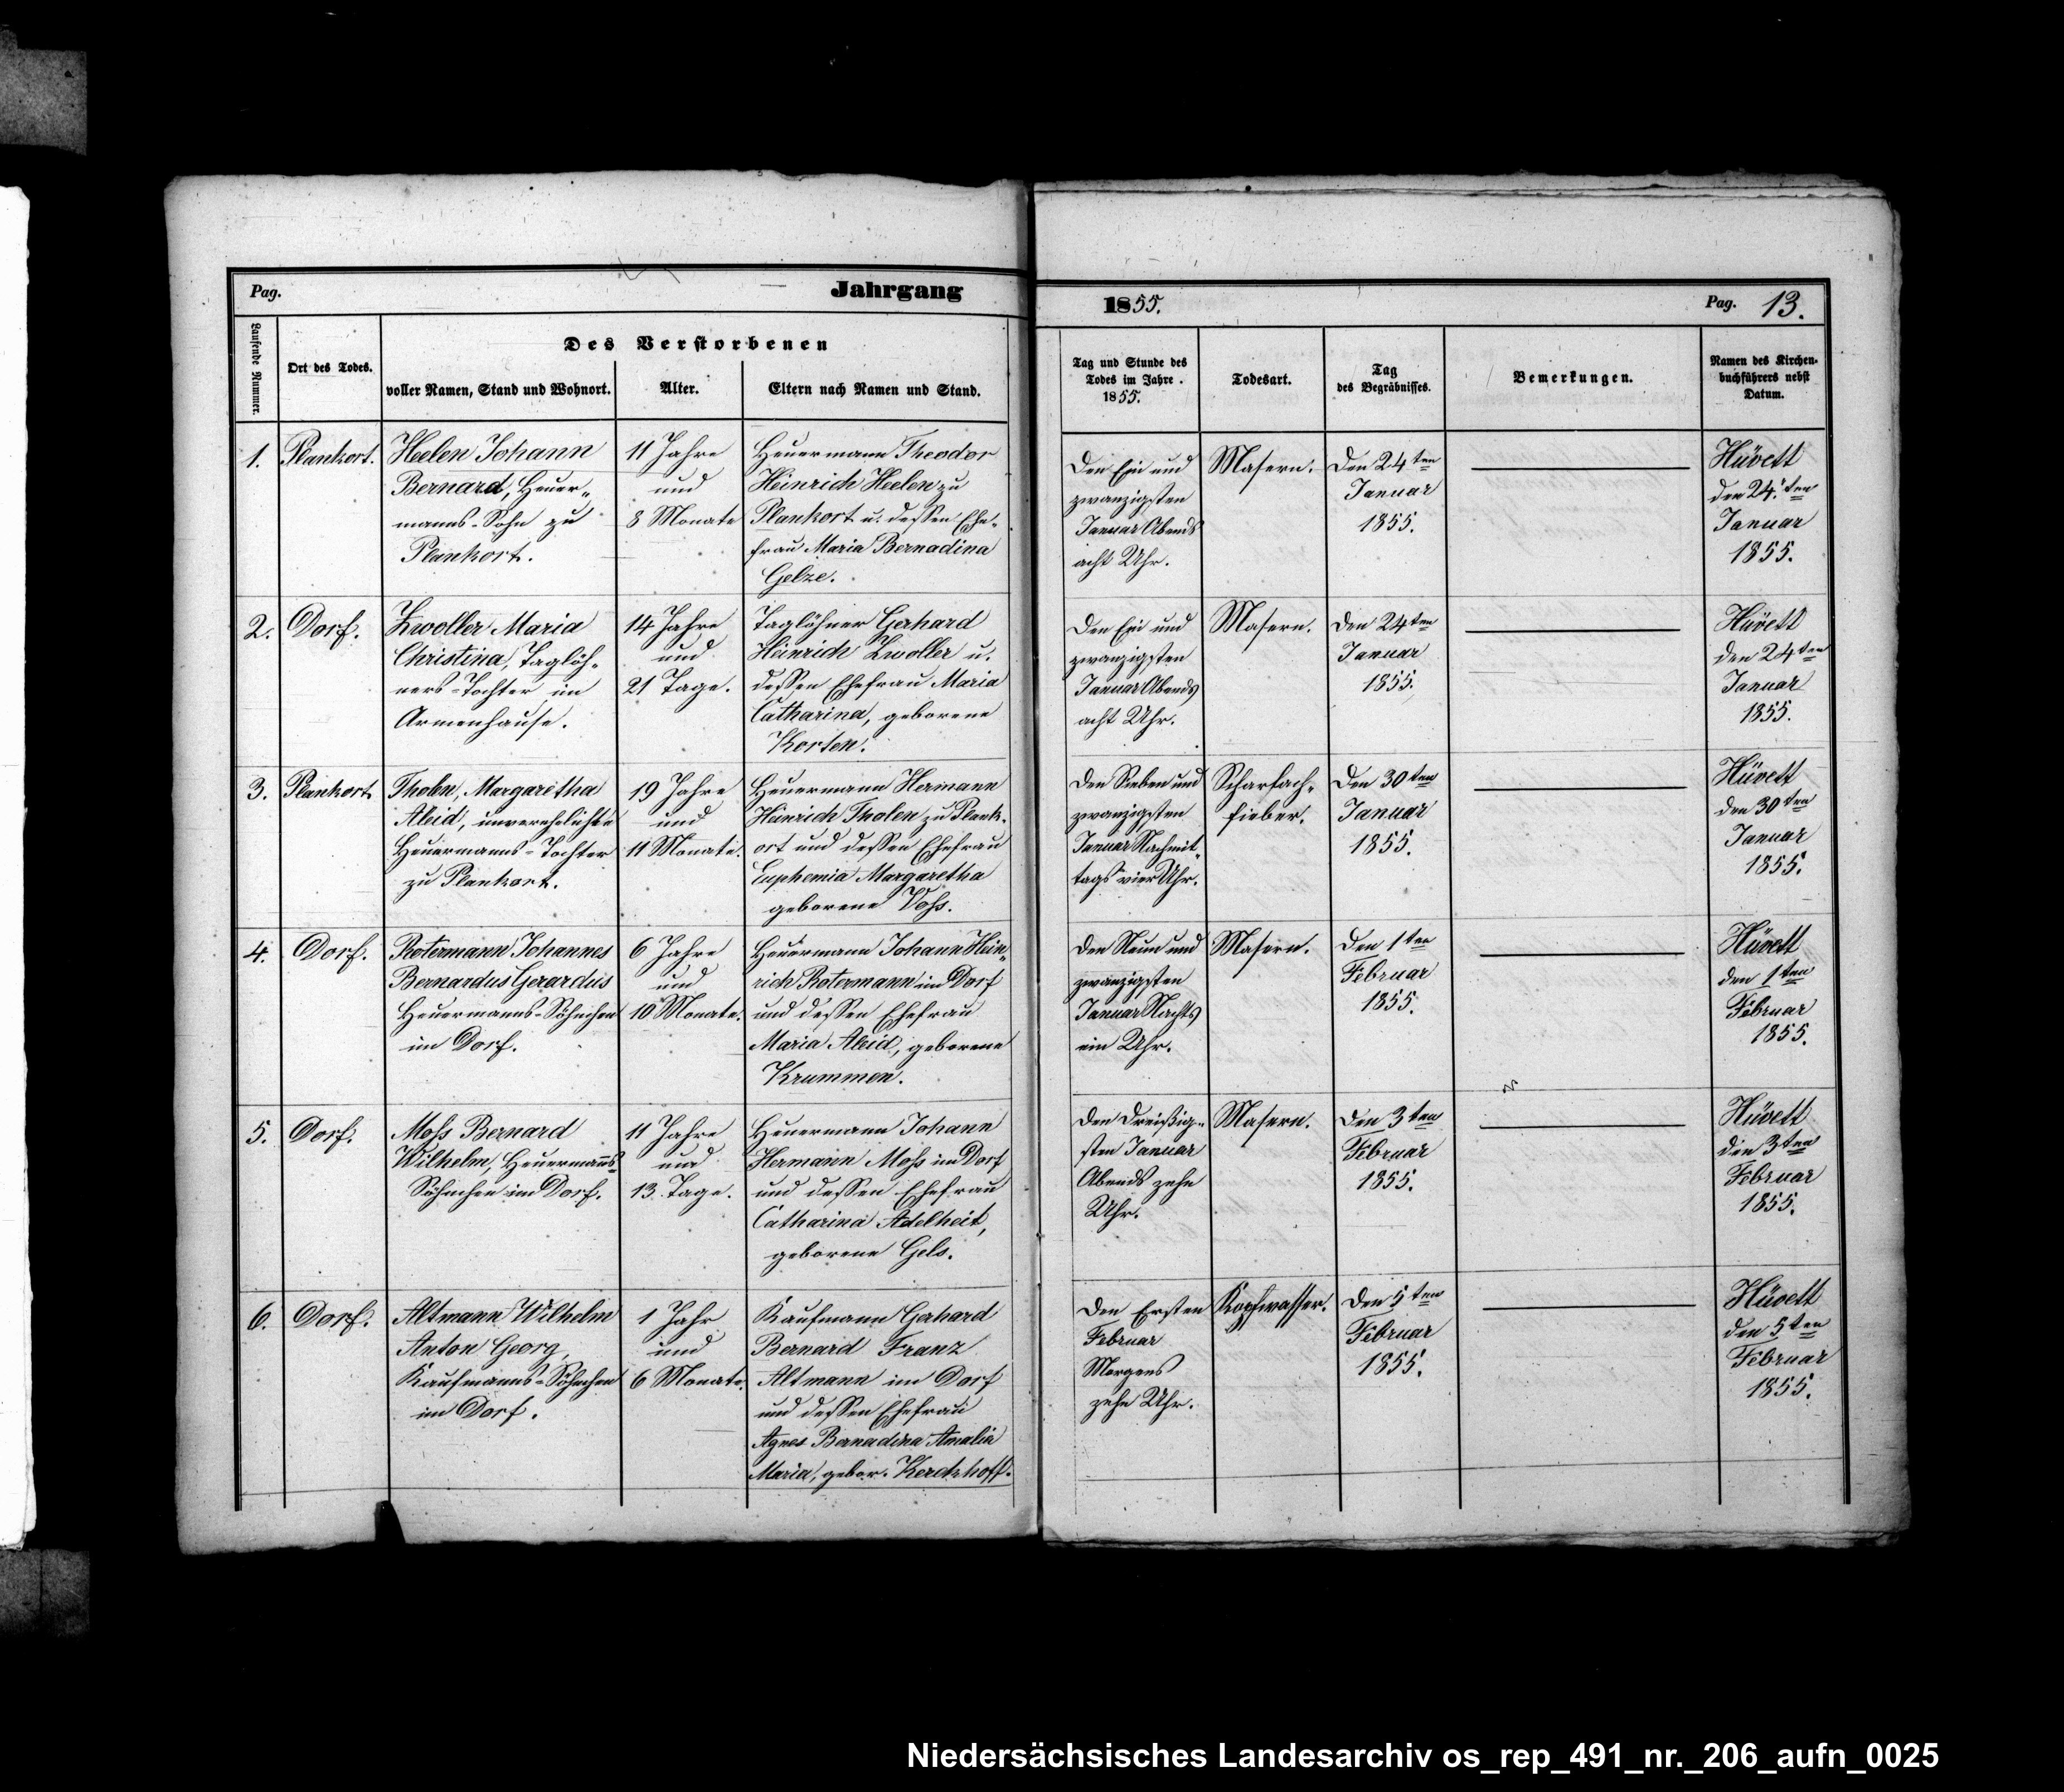 Pag.
Jahrgang
1855.
Pag. 13.
Laufende Nummer.
Ort des Todes.
Des Verstorbenen
voller Namen, Stand und Wohnort.
Alter.
Eltern nach Namen und Stand.
Tag und Stunde des
Todes im Jahre
1855.
Todesart.
Tag
des Begräbnisses.
Bemerkungen.
Namen des Kirchen-
buchführers nebst
Datum.
1.
Plankort.
Heelen Johann
Bernard, Heuer-
manns-Sohn zu
Plankort.
11 Jahre
und
8 Monate
Heuermann Theodor
Heinrich Heelen zu
Plankort u. dessen Ehe-
frau Maria Bernadina
Gelze.
Den Ein und
zwanzigsten
Januar Abends
acht Uhr.
Masern.
Den 24ten
Januar
1855.
Hüvett
den 24ten
Januar
1855.
2.
Dorf.
Zwoller Maria
Christina, Taglöh-
ners-Tochter im
Armenhause.
14 Jahre
und
21 Tage.
Taglöhner Gerhard
Heinrich Zwoller u.
dessen Ehefrau Maria
Catharina, geborene
Korten.
Den Ein und
zwanzigsten
Januar Abends
acht Uhr.
Masern.
Den 24ten
Januar
1855.
Hüvett
den 24ten
Januar
1855.
3.
Plankort
Tholen, Margaretha
Aleid, unverehelichte
Heuermanns-Tochter
zu Plankort.
19 Jahre
und
11 Monate.
Heuermann Hermann
Heinrich Tholen zu Plank-
ort und dessen Ehefrau
Euphemia Margaretha
geborene Voß.
Den Sieben und
zwanzigsten
Januar Nachmit-
tags vier Uhr.
Scharlach-
fieber.
Den 30ten
Januar
1855.
Hüvett
den 30ten
Januar
1855.
4.
Dorf.
Rotermann Johannes
Bernardus Gerardus
Heuermanns-Söhnchen
im Dorf.
6 Jahre
und
10 Monate.
Heuermann Johann Hein-
rich Rotermann im Dorf
und dessen Ehefrau
Maria Aleid, geborene
Krummen.
Den Neun und
zwanzigsten
Januar Nachts
ein Uhr.
Masern.
Den 1ten
Februar
1855.
Hüvett
den 1ten
Februar
1855.
5.
Dorf.
Moß Bernard
Wilhelm, Heuermanns-
Söhnchen im Dorf.
11 Jahre
und
13. Tage.
Heuermann Johann
Hermann Moß im Dorf
und dessen Ehefrau
Catharina Adelheit,
geborene Gels.
Den Dreißig-
sten Januar
Abends zehn
Uhr.
Masern.
Den 3ten
Februar
1855.
Hüvett
den 3ten
Februar
1855.
6.
Dorf.
Altmann Wilhelm
Anton Georg,
Kaufmanns-Söhnchen
im Dorf.
1 Jahr
und
6 Monate.
Kaufmann Gerhard
Bernard Franz
Altmann im Dorf
und dessen Ehefrau
Agnes Bernadina Amalia
Maria, gebor. Kerckhoff.
Den Ersten
Februar
Morgens
zehn Uhr.
Kopfwasser.
Den 5ten
Februar
1855.
Hüvett
den 5ten
Februar
1855.
Niedersächsisches Landesarchiv os_rep_491_nr._206_aufn_0025